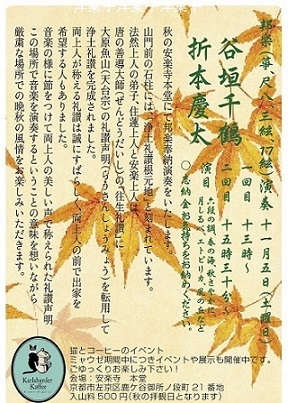 邦楽(箏、尺八、三絃、17絃)演奏 十一月五日(土曜日)
谷垣千鶴
折本慶太
一回目 十三時~
二回目 十五時三十分~
演目 六段の調、春の海、秋さやかに
月しるべ、エトピリカ、風の丘など
〇志納金お気持ちをお納めください。
秋の安楽寺本堂にて邦楽奉納演奏をいたします。
山門前の石柱には、「浄土礼讃根元地」と刻まれています。
法然上人の弟子、住蓮上人と安楽上人は、
唐の善導大師(ぜんどうだいし)の『往生礼讃』に
大原魚山(天台宗)の礼讃声明(らいさんしょうみょう)を転用して
浄土礼讃を完成されました。
両上人が称える礼讃は誠にすばらしく、両上人の前で出家を
希望する人もありました。
音楽の様に節をつけて両上人の美しい声で称えられた礼讃声明
この場所で音楽を演奏するということの意味を想いながら
厳粛な場所での晩秋の風情をお楽しみいただきます。
猫とコーヒーのイベント
ミャウゼ期間中につきイベントや展示も開催中です。
ごゆっくりお楽しみ下さい!
会場:安楽寺 本堂
京都市左京区鹿ケ谷御所ノ段町21番地
入山料500円(秋の拝観日となります)
Karlsbader
Kaffee